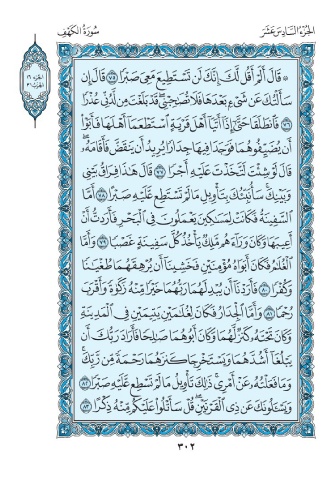 الجزء السادس عشر
سورة الكهف
الجزء ١٦
الحزب ٣١
۞ قَالَ أَلَمْ أَقُل لَّكَ إِنَّكَ لَن تَسْتَطِيعَ مَعِيَ صَبْرًا ٧٥ قَالَ إِن
سَأَلْتُكَ عَن شَيْءٍ بَعْدَهَا فَلَا تُصَاحِبْنِي قَدْ بَلَغْتَ مِن لَّدُنِّي عُذْرًا
٧٦ فَانطَلَقَا حَتَّىٰ إِذَا أَتَيَا أَهْلَ قَرْيَةٍ اسْتَطْعَمَا أَهْلَهَا فَأَبَوْا
أَن يُضَيِّفُوهُمَا فَوَجَدَا فِيهَا جِدَارًا يُرِيدُ أَن يَنقَضَّ فَأَقَامَهُ
قَالَ لَوْ شِئْتَ لَتَّخَذْتَ عَلَيْهِ أَجْرًا ٧٧ قَالَ هَٰذَا فِرَاقُ بَيْنِي
وَبَيْنِكَ سَأُنَبِّئُكَ بِتَأْوِيلِ مَا لَمْ تَسْتَطِع عَّلَيْهِ صَبْرًا ٧٨ أَمَّا
السَّفِينَةُ فَكَانَتْ لِمَسَاكِينَ يَعْمَلُونَ فِي الْبَحْرِ فَأَرَدتُّ أَنْ
أَعِيبَهَا وَكَانَ وَرَاءَهُم مَّلِكٌ يَأْخُذُ كُلَّ سَفِينَةٍ غَصْبًا ٧٩ وَأَمَّا
الْغُلَامُ فَكَانَ أَبَوَاهُ مُؤْمِنَيْنِ فَخَشِينَا أَن يُرْهِقَهُمَا طُغْيَانًا
وَكُفْرًا ٨٠ فَأَرَدْنَا أَن يُبْدِلَهُمَا رَبُّهُمَا خَيْرًا مِّنْهُ زَكَاةً وَأَقْرَبَ
رُحْمًا ٨١ وَأَمَّا الْجِدَارُ فَكَانَ لِغُلَامَيْنِ يَتِيمَيْنِ فِي الْمَدِينَةِ
وَكَانَ تَحْتَهُ كَنزٌ لَّهُمَا وَكَانَ أَبُوهُمَا صَالِحًا فَأَرَادَ رَبُّكَ أَن
يَبْلُغَا أَشُدَّهُمَا وَيَسْتَخْرِجَا كَنزَهُمَا رَحْمَةً مِّن رَّبِّكَ
وَمَا فَعَلْتُهُ عَنْ أَمْرِي ذَٰلِكَ تَأْوِيلُ مَا لَمْ تَسْطِع عَّلَيْهِ صَبْرًا ٨٢
وَيَسْأَلُونَكَ عَن ذِي الْقَرْنَيْنِ قُلْ سَأَتْلُو عَلَيْكُم مِّنْهُ ذِكْرًا ٨٣
٣٠٢